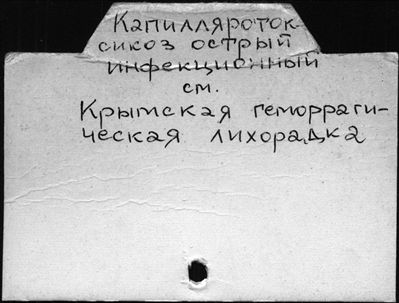 Капилляроток-
сикоз острый
инфекционный
см.
Крымская геморраги-
ческая лихорадка